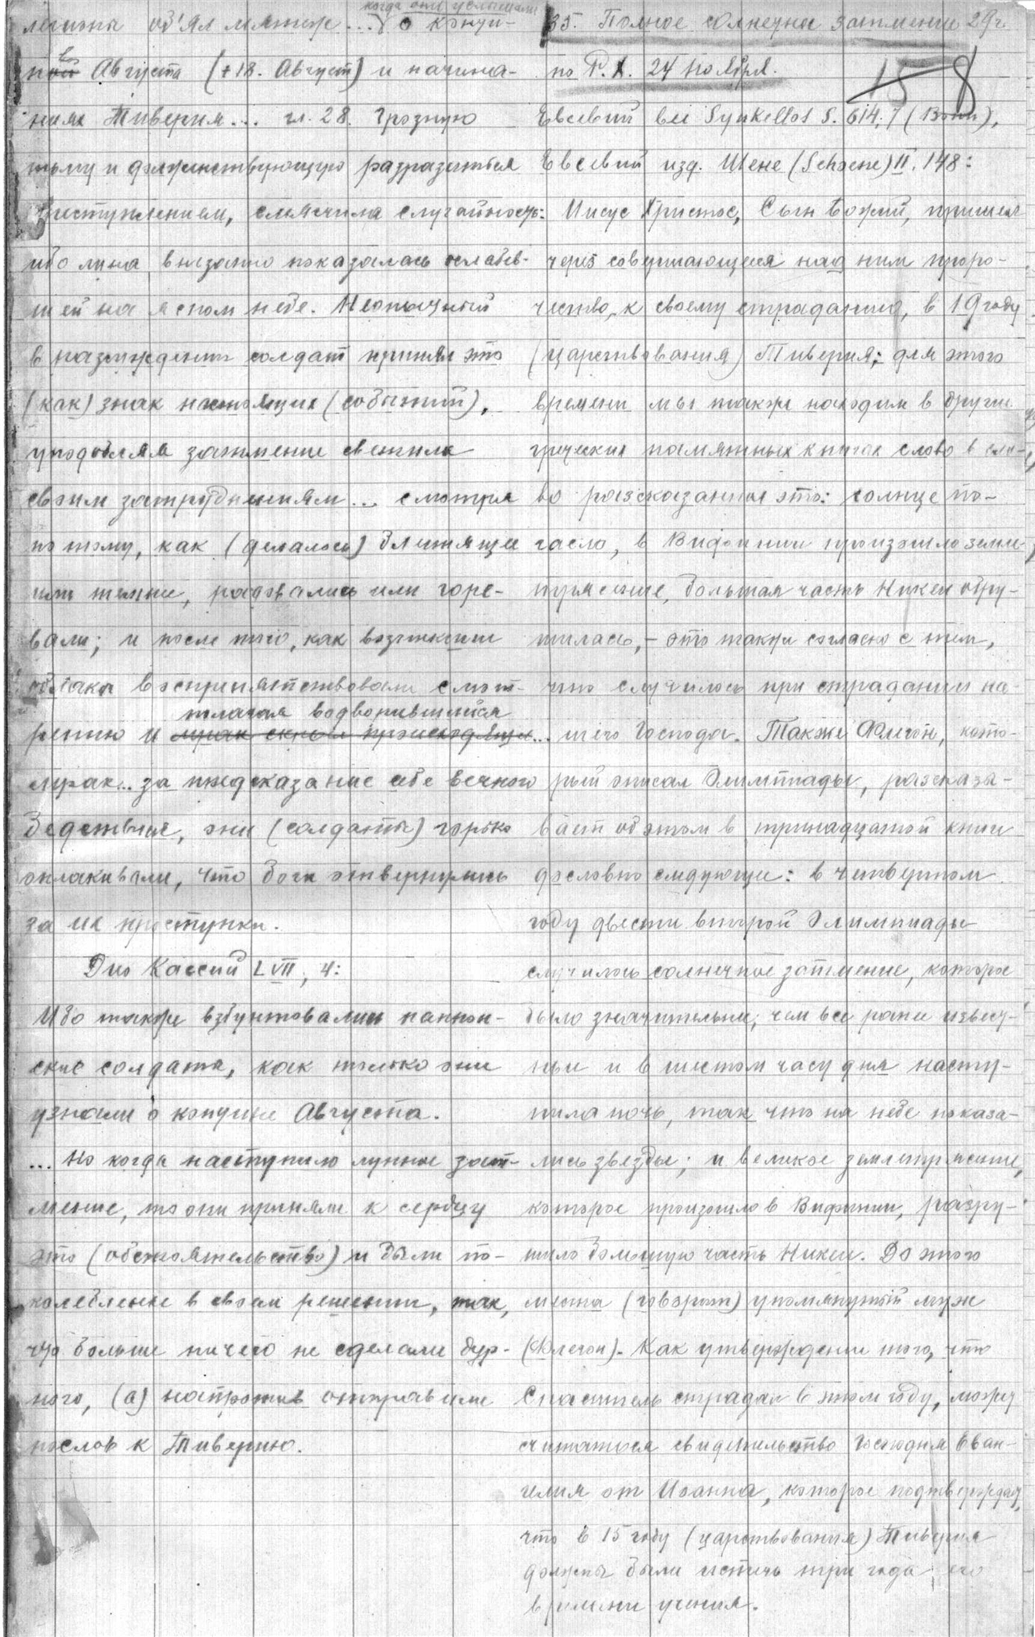 легионы об'ял мятеж... когда они услышали о кончи-
не Августа (+18. Август) и начина-
ниях Тиверия... гл. 28. Грозную
тьму и долженствующую разразиться
преступлением, смягчила случайность:
ибо луна внезапно показалась ослабев-
шей на ясном небе. Неопытный
в разсуждениях солдат принял это
(как) знак настоящих (событий),
уподобляя затмение светила
своим затруднениям... смотря
по тому, как (делалось) блестящее
или темнее, радовались или горе-
вали; и после того, как возникшие
облака воспрепятствовали смот-
рению и водворившийся
мрак.. за предсказание себе вечного
бедствия, они (солдаты) горько
оплакивали, что боги отвернулись
за их проступки.
Дио Кассий LVII, 4:
Ибо также взбунтовались паннон-
ские солдаты, как только они
узнали о кончине Августа.
... Но когда наступило лунное зат-
мение, то они приняли к сердцу
это (обстоятельство) и были по-
колеблены в своем решении, так,
что больше ничего не сделали дур-
ного, (а) напротив отправили
послов к Тиверию.
35. Полное солнечное затмение 29 г.
по Р. Х. 24 Ноября.
158
Евсевий bei Synkellos S. 614, 7 (Bonn),
Евсевий изд. Шене (Schoene) II. 148:
Иисус Христос, Сын Божий, пришел
через совершающееся над ним проро-
чество, к своему страданию, в 19 году
(царствования) Тиверия; для этого
времени мы также находим в других
греческих памятных книгах слово в сло-
во разсказанным это: солнце по-
гасло, в Вифинии произошло земле-
трясение, большая часть Никеи обру-
шилась, - это также согласно с тем,
что случилось при страдании на-
шего Господа. Также Флегон, кото-
рый описал Олимпиады, разсказы-
вает об этом в тринадцатой книге
дословно следующее: в четвертом
году двести второй Олимпиады
случилось солнечное затмение, которое
было значительнее, чем все ранее извест-
ные и в шестом часу дня насту-
пила ночь, так что на небе показа-
лись звезды; и великое землетрясение,
которое произошло в Вифинии, разру-
шило большую часть Никеи. До этого
места (говорит) упомянутый муж
(Флегон). Как утверждение того, что
Спаситель страдал в этом году, может
считаться свидетельство Господня Еван-
гелия от Иоанна, которое подтверждает,
что в 15 году (царствования) Тиверия
должны были истечь три года его
времени учения.